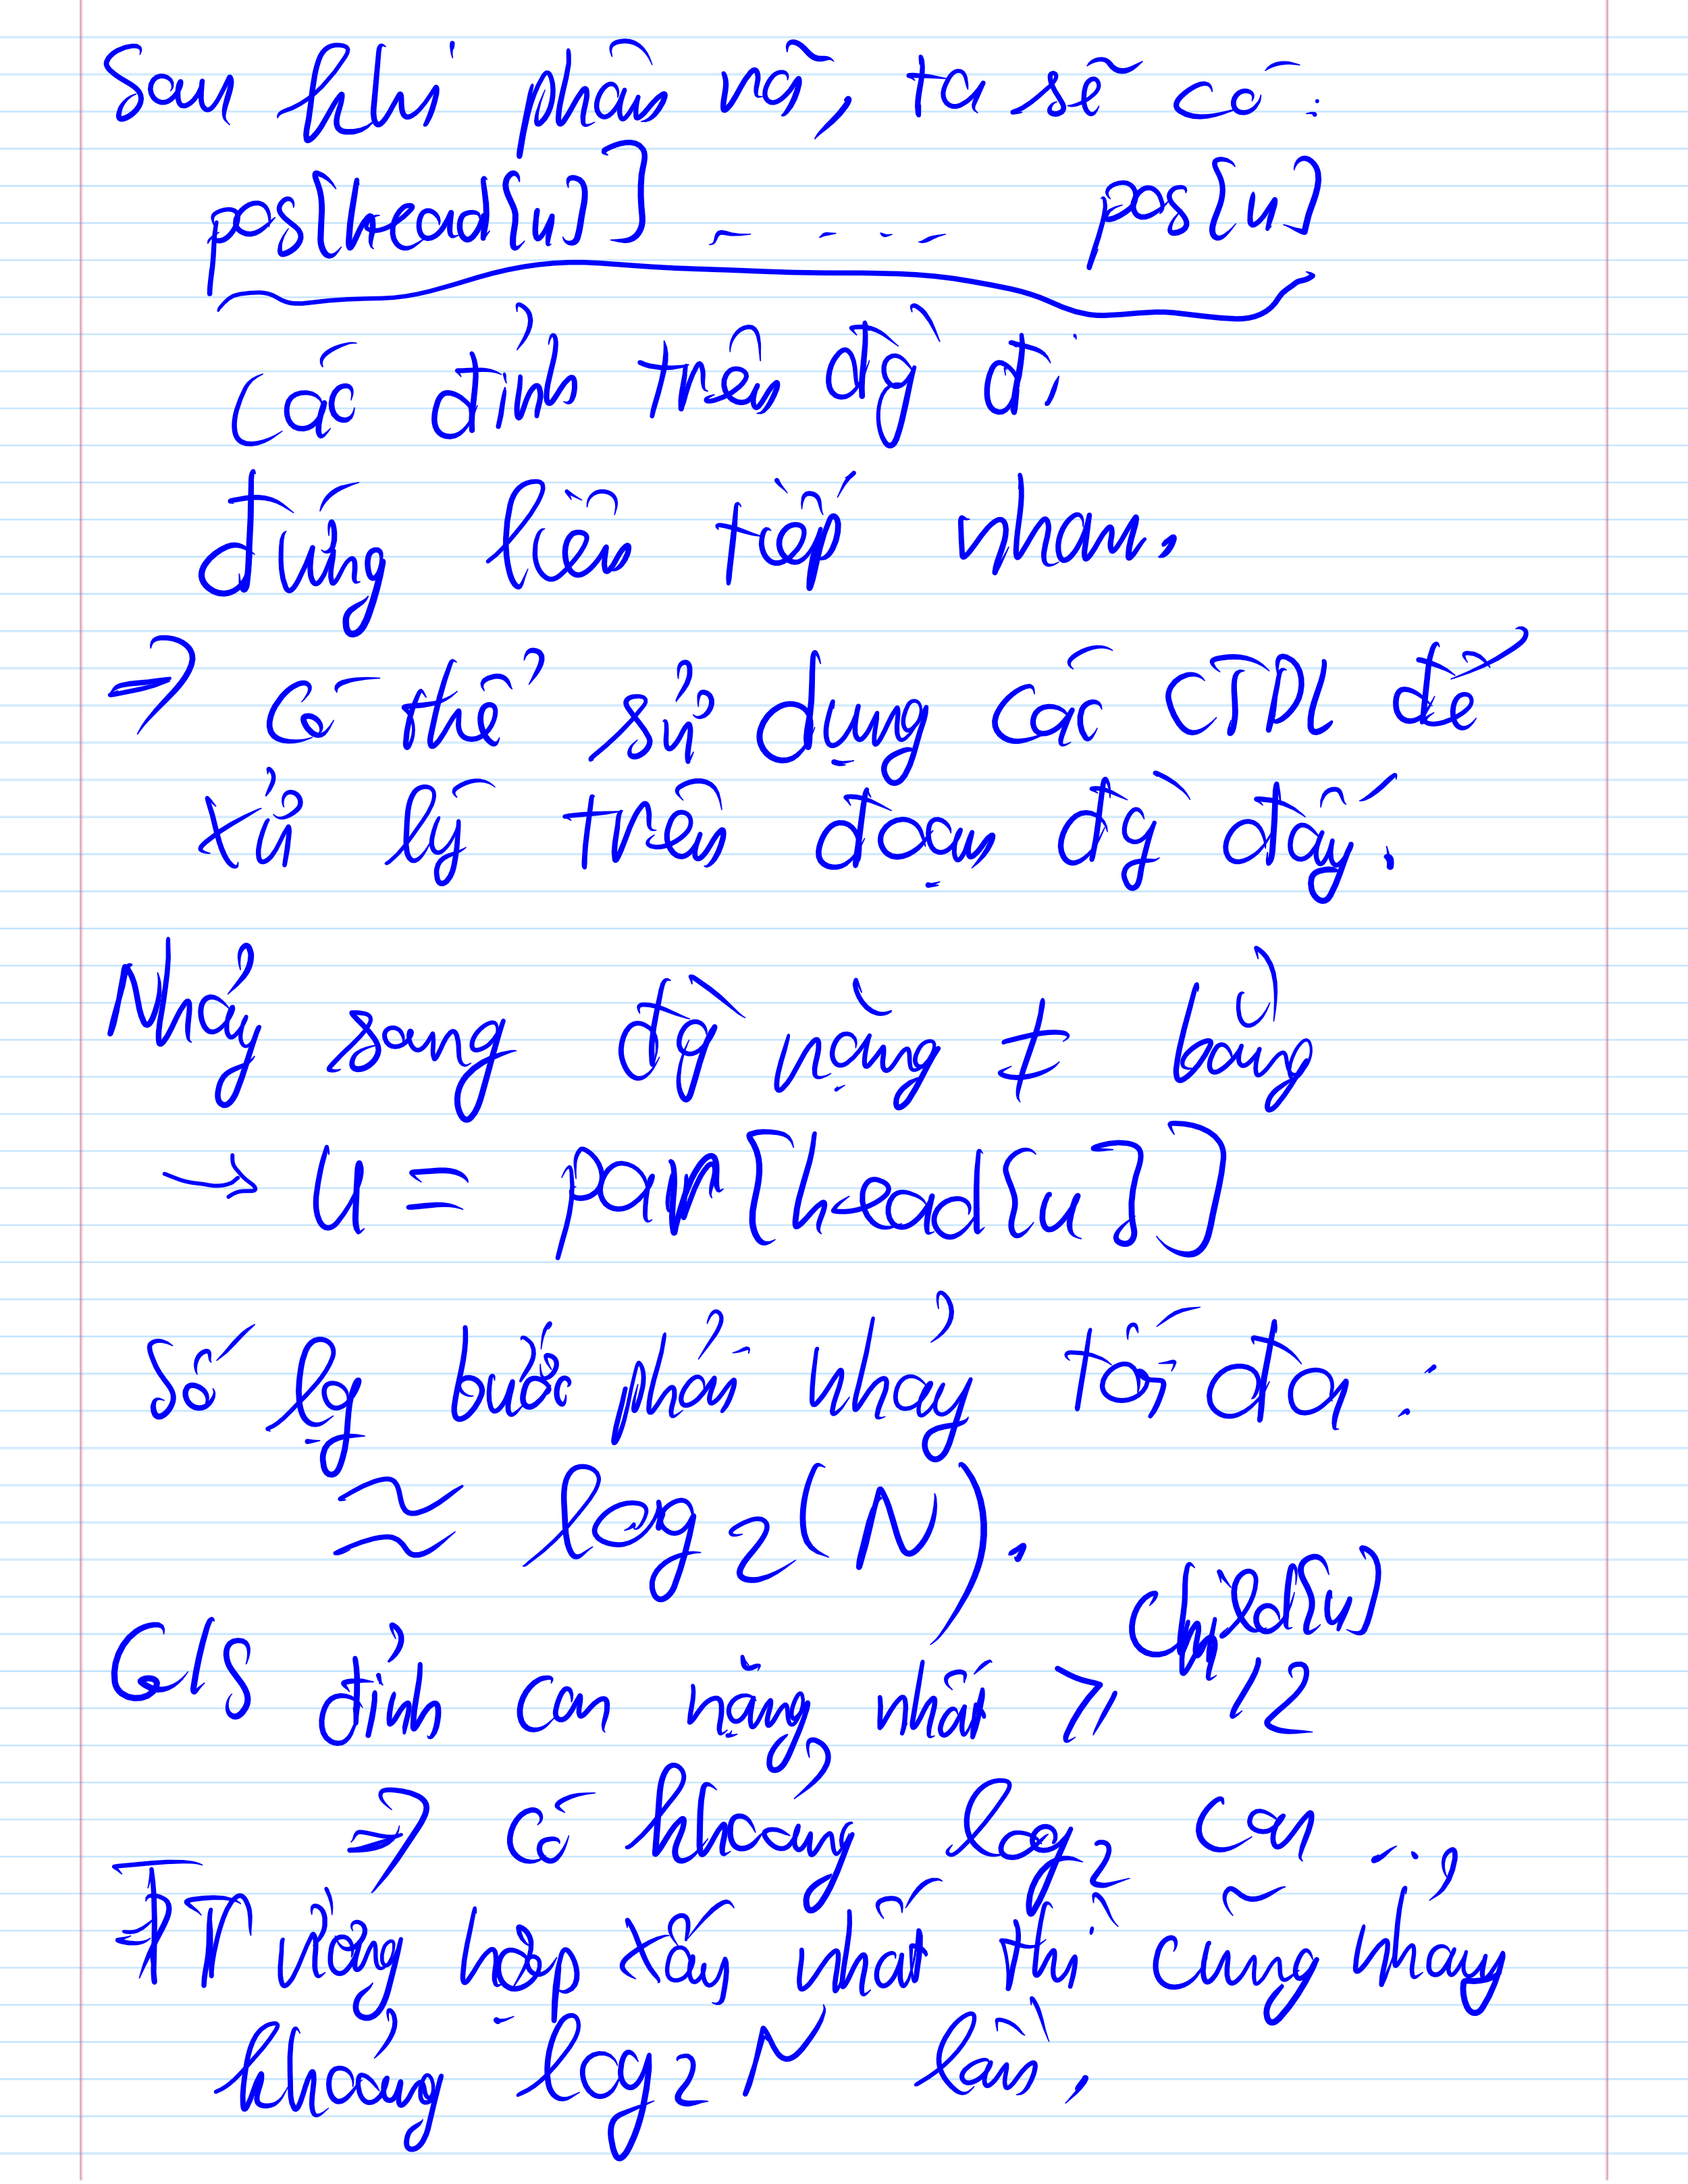 Sau khi phân rã, ta sẽ có:
pos[head[u]] ..... pos[u]
Các đỉnh trên đg đi
đứng liên tiếp nhau.
⇒ Có thể sử dụng các CTDL để
xử lý trên đoạn đg đấy.
Nhảy sang đg nặng ≠ bằng
→ u = par[head[u]]
Số lg bước phải nhảy tối đa:
≈ log2(N).
G/S đỉnh con nặng nhất ≥ child[u]/2
⇒ có khoảng log2 con
Trường hợp xấu nhất thì cũng nhảy
khoảng log2 N lần.